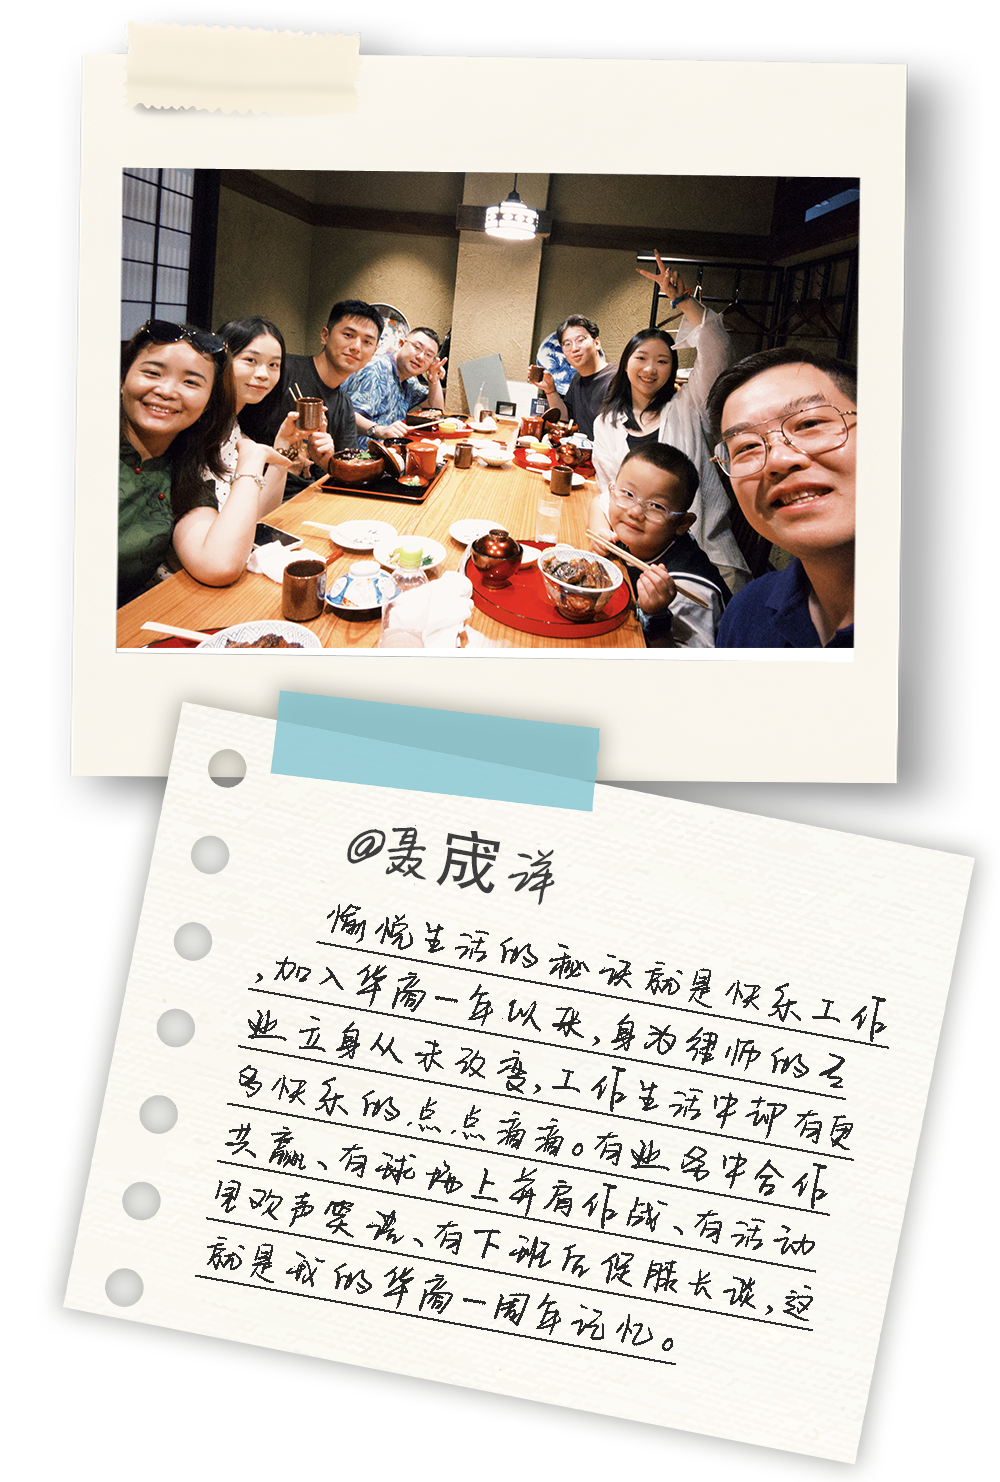 @聂宬详
愉悦生活的秘诀就是快乐工作
，加入华商一年以来，身为律师的
业立身从未改变，工作生活中却有更
多快乐的点点滴滴。有业务中合作
共赢、有球场上并肩作战、有活动
里欢声笑语、有下班后促膝长谈，这
就是我的华商一周年记忆。